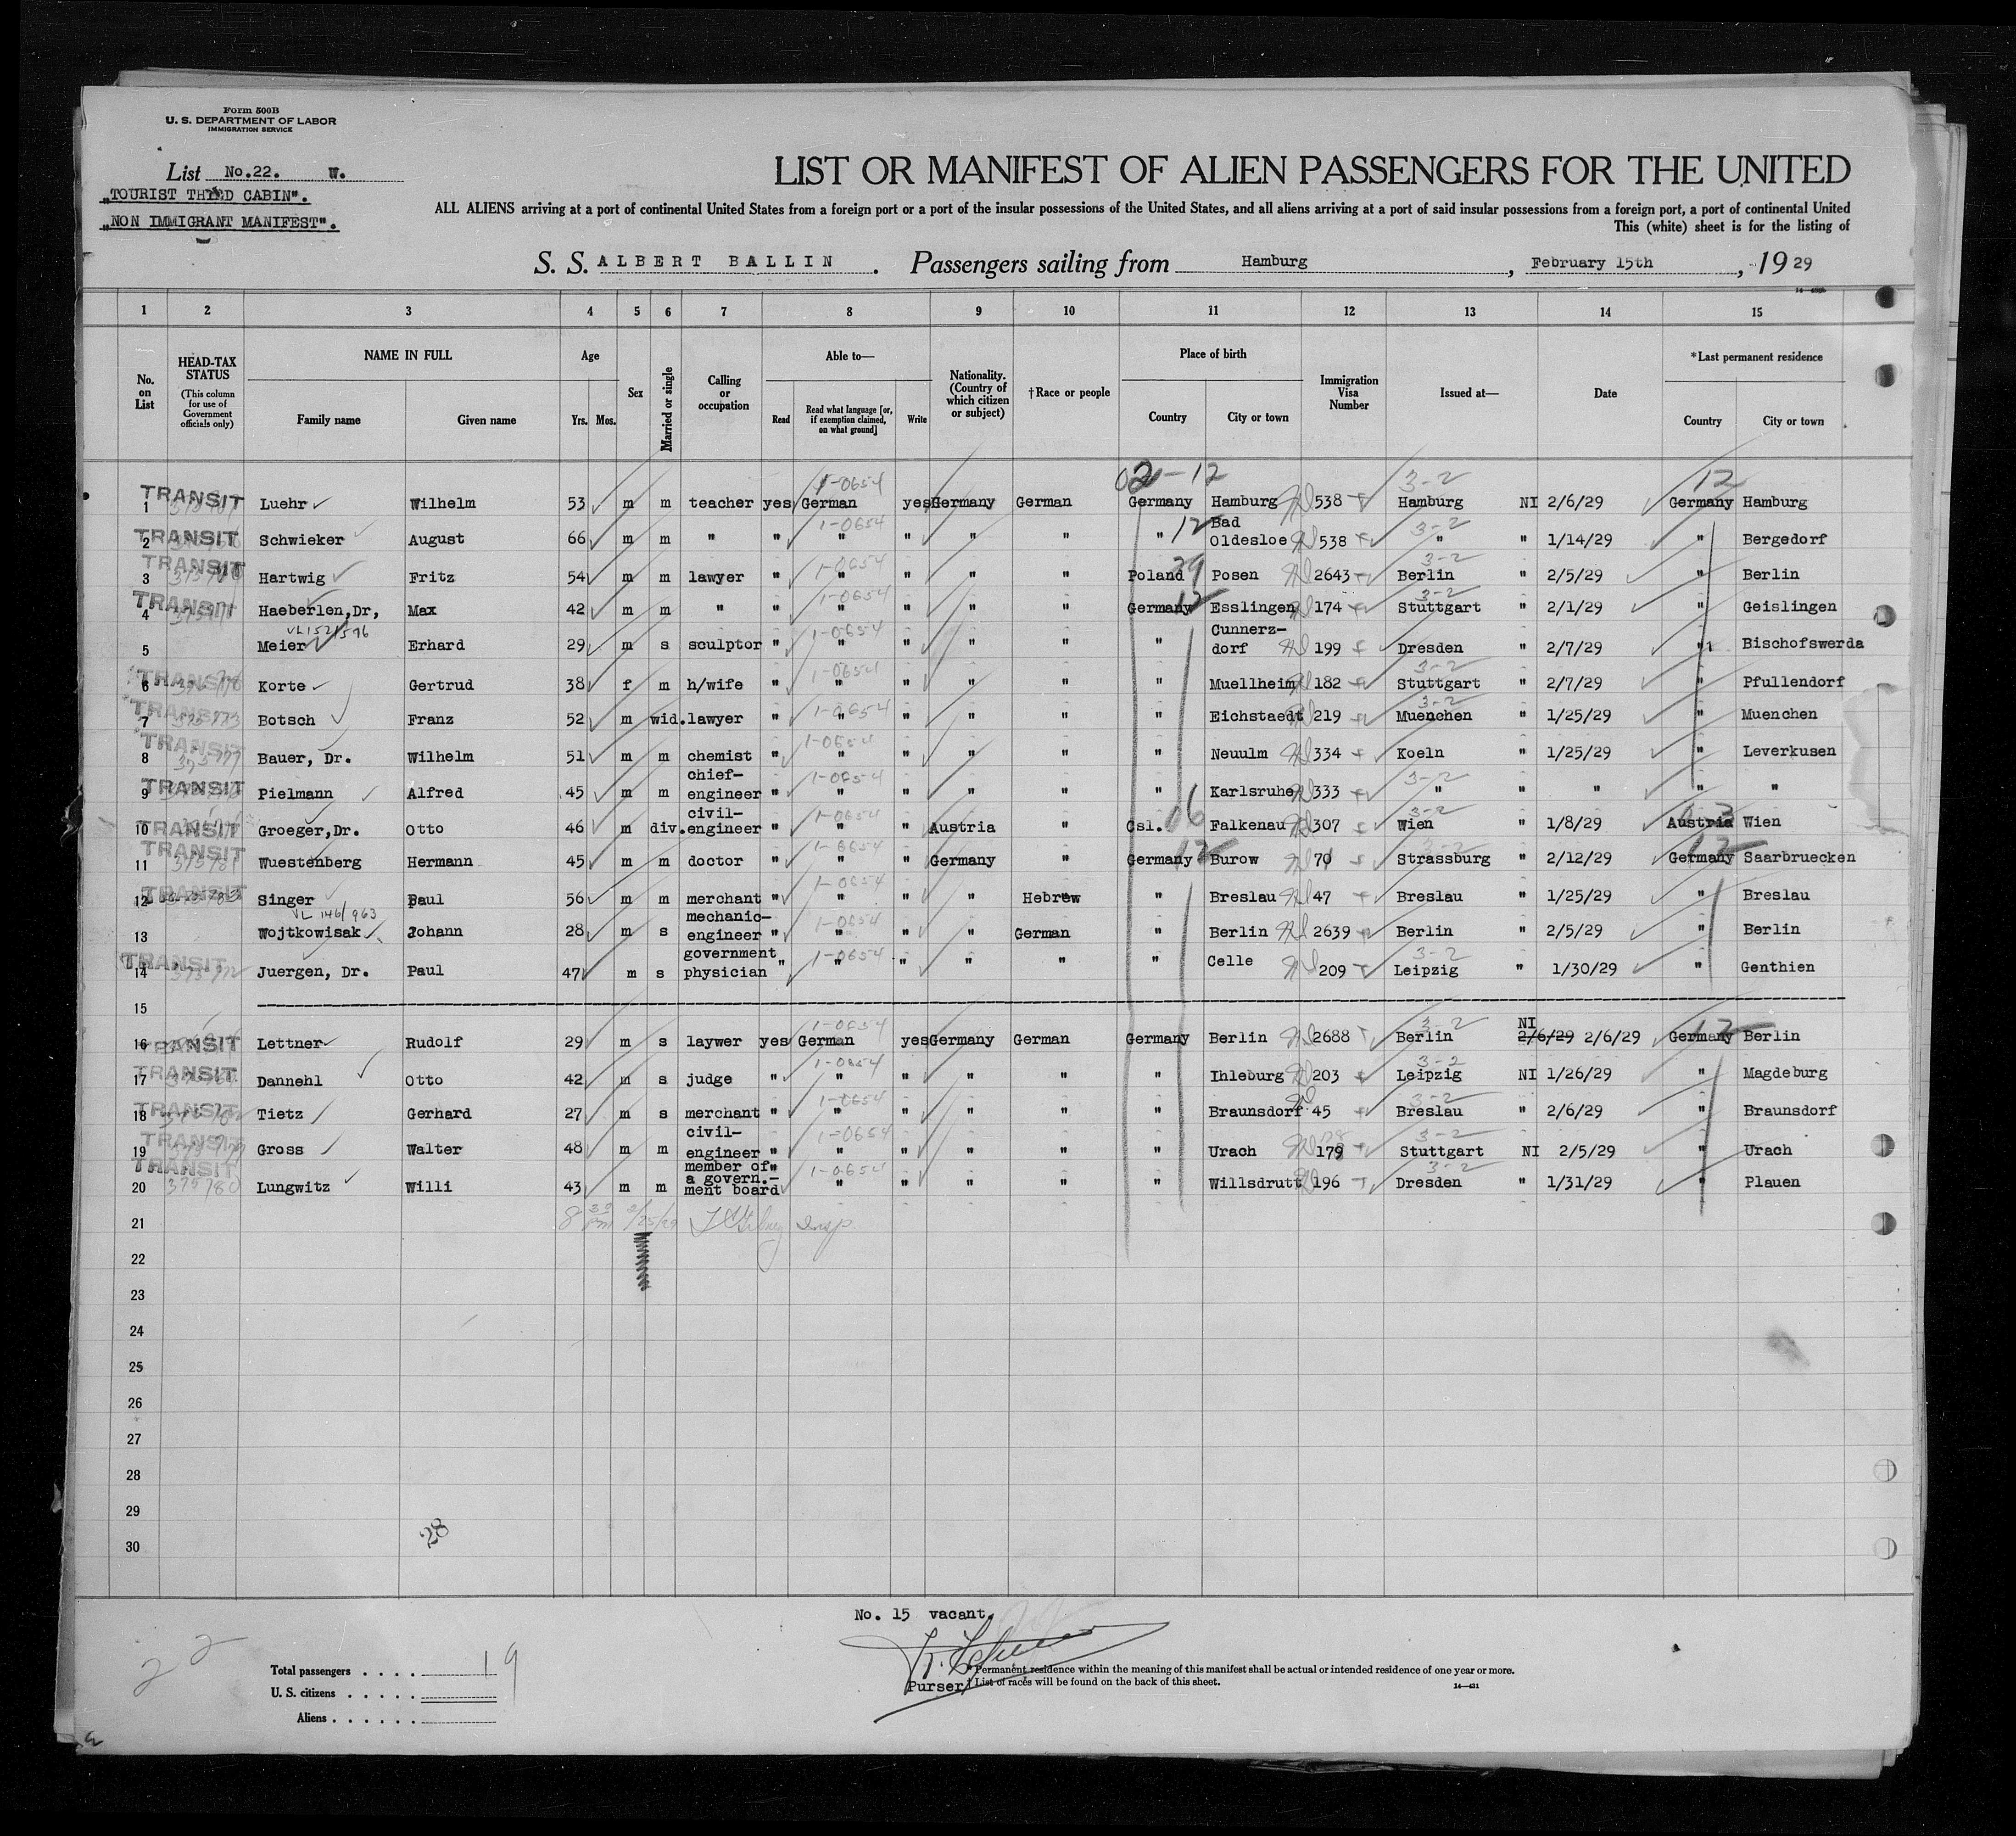 Form 500B
U. S. DEPARTMENT OF LABOR
IMMIGRATION SERVICE
List No.22. W.
„TOURIST THIRD CABIN".
„NON IMMIGRANT MANIFEST".
LIST OR MANIFEST OF ALIEN PASSENGERS FOR THE UNITED
ALL ALIENS arriving at a port of continental United States from a foreign port or a port of the insular possessions of the United States, and all aliens arriving at a port of said insular possessions from a foreign port, a port of continental United
This (white) sheet is for the listing of
S. S. ALBERT BALLIN. Passengers sailing from Hamburg, February 15th, 1929
1 2 3 4 5 6 7 8 9 10 11 12 13 14 15
No. on List
HEAD-TAX STATUS (This column for use of Government officials only)
NAME IN FULL
Family name Given name
Age
Yrs. Mos.
Sex
Married or single
Calling or occupation
Able to—
Read
Read what language [or, if exemption claimed, on what ground]
Write
Nationality. (Country of which citizen or subject)
†Race or people
Place of birth
Country City or town
Immigration Visa Number
Issued at—
Date
*Last permanent residence
Country City or town
02-12 3-2 12
1-0654
1 TRANSIT Luehr Wilhelm 53 m m teacher yes German yes Germany German Germany Hamburg 538 Hamburg NI 2/6/29 Germany Hamburg
1-0654 12 Bad 3-2
2 TRANSIT Schwieker August 66 m m " " " " " " " Oldesloe 538 " " 1/14/29 " Bergedorf
1-0654 29 3-2
3 TRANSIT Hartwig Fritz 54 m m lawyer " " " " " Poland Posen 2643 Berlin " 2/5/29 " Berlin
1-0654 12 3-2
4 TRANSIT Haeberlen,Dr, Max 42 m m " " " " " " Germany Esslingen 174 Stuttgart " 2/1/29 " Geislingen
VL152/596 1-0654 Cunnerz-
5 Meier Erhard 29 m s sculptor " " " " " " dorf 199 Dresden " 2/7/29 " Bischofswerda
1-0654 3-2
6 TRANSIT Korte Gertrud 38 f m h/wife " " " " " " Muellheim 182 Stuttgart " 2/7/29 " Pfullendorf
1-0654 3-2
7 TRANSIT Botsch Franz 52 m wid. lawyer " " " " " " Eichstaedt 219 Muenchen " 1/25/29 " Muenchen
1-0654
8 TRANSIT Bauer, Dr. Wilhelm 51 m m chemist " " " " " " Neuulm 334 Koeln " 1/25/29 " Leverkusen
chief- 1-0654 3-2
9 TRANSIT Pielmann Alfred 45 m m engineer " " " " " " Karlsruhe 333 " " " " "
civil- 1-0654 06 3-2 03
10 TRANSIT Groeger,Dr. Otto 46 m div. engineer " " " Austria " Csl. Falkenau 307 Wien " 1/8/29 Austria Wien
1-0654 12 3-2 12
11 TRANSIT Wuestenberg Hermann 45 m m doctor " " " Germany " Germany Burow 70 Strassburg " 2/12/29 Germany Saarbruecken
1-0654
12 TRANSIT Singer Paul 56 m m merchant " " " " Hebrew " Breslau 47 Breslau " 1/25/29 " Breslau
VL 146/963 mechanic- 1-0654
13 Wojtkowisak Johann 28 m s engineer " " " " German " Berlin 2639 Berlin " 2/5/29 " Berlin
government 1-0654 3-2
14 TRANSIT Juergen, Dr. Paul 47 m s physician " " " " " " Celle 209 Leipzig " 1/30/29 " Genthien
15
1-0654 3-2 NI 12
16 TRANSIT Lettner Rudolf 29 m s laywer yes German yes Germany German Germany Berlin 2688 Berlin 2/6/29 2/6/29 Germany Berlin
1-0654 3-2
17 TRANSIT Dannehl Otto 42 m s judge " " " " " " Ihleburg 203 Leipzig NI 1/26/29 " Magdeburg
1-0654 3-2
18 TRANSIT Tietz Gerhard 27 m s merchant " " " " " " Braunsdorf 45 Breslau " 2/6/29 " Braunsdorf
civil- 1-0654 3-2
19 TRANSIT Gross Walter 48 m m engineer " " " " " " Urach 179 Stuttgart NI 2/5/29 " Urach
member of a govern.- 1-0654 3-2
20 TRANSIT 375780 Lungwitz Willi 43 m m ment board " " " " " " Willsdrutt 196 Dresden " 1/31/29 " Plauen
21 8 30 pm 2/25/29 Insp
22
23
24
25
26
27
28
29
30
28
No. 15 vacant.
22
Total passengers . . . . 19
U. S. citizens . . . . .
Aliens . . . . . .
Purser
*Permanent residence within the meaning of this manifest shall be actual or intended residence of one year or more.
†List of races will be found on the back of this sheet.
14—431